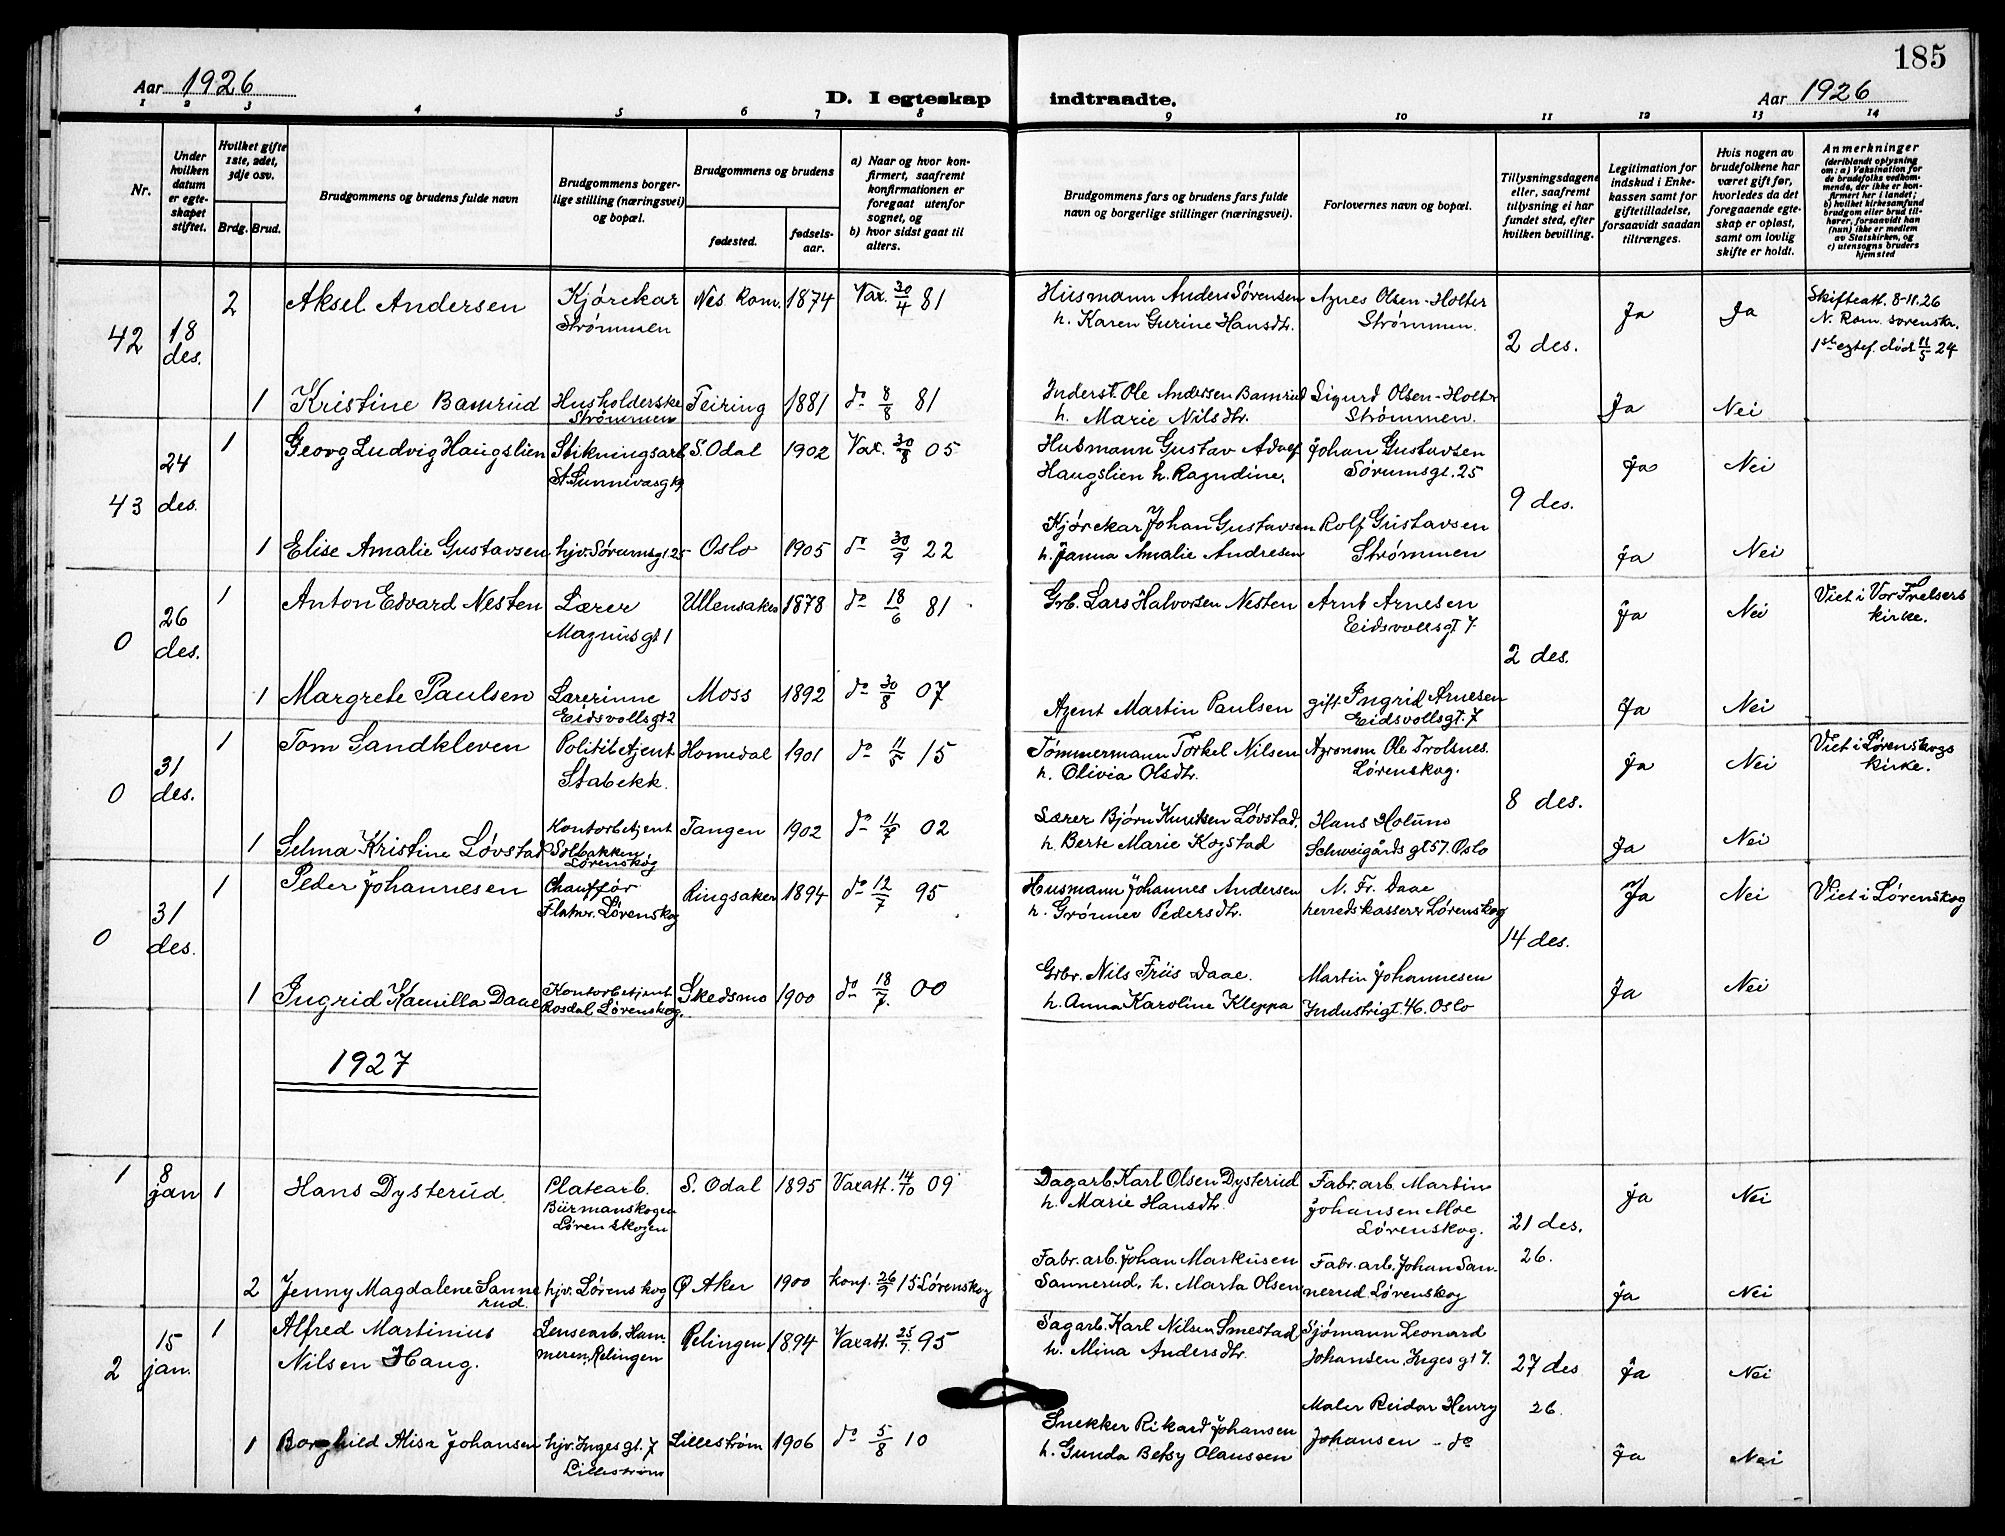 185
Aar 1926
D. I egteskap indtraadte.
Aar 1926
1 2 3 4 5 6 7 8 9 10 11 12 13 14
Nr.
Under hvilken datum er egteskapet stiftet.
Hvilket gifte 1ste, 2det, 3dje osv.
Brdg. Brud.
Brudgommens og brudens fulde navn
Brudgommens borgerlige stilling (næringsvei) og bopæl.
Brudgommens og brudens
fødested.
fødselsaar.
a) Naar og hvor konfirmert, saafremt konfirmationen er foregaat utenfor sognet, og
b) hvor sidst gaat til alters.
Brudgommens fars og brudens fars fulde navn og borgerlige stillinger (næringsvei).
Forlovernes navn og bopæl.
Tillysningsdagene eller, saafremt tillysning ei har fundet sted, efter hvilken bevilling.
Legitimation for indskud i Enkekassen samt for giftetilladelse, forsaavidt saadan tiltrænges.
Hvis nogen av brudefolkene har været gift før, hvorledes da det foregaaende egteskap er opløst, samt om lovlig skifte er holdt.
Anmerkninger
(deriblandt oplysning om: a) Vaksination for de brudefolks vedkommende, der ikke er konfirmert her i landet; b) hvilket kirkesamfund brudgom eller brud tilhører, forsaavidt han (hun) ikke er medlem av Statskirken, og c) utensogns bruders hjemsted
42 18 des. 2 Aksel Andersen Kjørekar Strømmen Nes Rom. 1874 Vax. 30/4 81 Husmann Anders Sørensen h. Karen Gurine Hansdtr. Agnes Olsen-Holter Strømmen. 2 des. Ja Ja Skifteatt. 8-11.26 N. Rom. sorenskr. 1ste egtef. død 11/5 24
1 Kristine Bamrud Husholderske Strømmen Feiring 1881 do 8/8 81 Inderst. Ole Andersen Bamrud h. Marie Nilsdtr. Sigurd Olsen-Holter Strømmen. Ja Nei
43 24 des. 1 Georg Ludvig Haugslien Stikningsarb. St. Sunnivasgt 9 S. Odal 1902 Vax. 30/8 05 Husmann Gustav Adolf Haugslien h. Ragndine. Johan Gustavsen Sørumsgt. 25 9 des. Ja Nei
1 Elise Amalie Gustavsen hjv. Sørumsgt 25 Oslo 1905 do 30/9 22 Kjørekar Johan Gustavsen h. Janna Amalie Andresen Rolf Gustavsen Strømmen Ja Nei
0 26 des. 1 Anton Edvard Nesten Lærer Magnusgt 1 Ullensaker 1878 do 18/6 81 Grb. Lars Halvorsen Nesten Arnt Arnesen Eidsvollsgt 7. 2 des. Ja Nei Viet i Vor Frelsers kirke.
1 Margrete Paulsen Lærerinne Eidsvollsgt 2 Moss 1892 do 30/8 07 Agent Martin Paulsen gift. Ingrid Arnesen Eidsvollsgt. 7 Ja Nei
0 31 des. 1 Tom Sandkleven Politibetjent Stabekk. Homedal 1901 do 11/5 15 Tømmermann Torkel Nilsen h. Olivia Olsdtr. Agronom Ole Trolsnes. Lørenskog. 8 des. Ja Nei Viet i Lørenskogs kirke.
1 Selma Kristine Løvstad Kontorbetjent Solbakken, Lørenskog Tangen 1902 do 11/7 02 Lærer Bjørn Knutsen Løvstad, h. Berte Marie Kogstad Hans Holum Schweigårdsgt 57. Oslo Ja Nei
0 31 des. 1 Peder Johannesen Chauffør Flatnr. Lørenskog Ringsaker 1894 do 12/7 95 Husmann Johannes Andersen h. Grønner Pedersdtr. N. Fr. Daae herredskasserer Lørenskog 14 des. Ja Nei Viet i Lørenskog
1 Ingrid Kamilla Daae Kontorbetjent Rosdal, Lørenskog. Skedsmo 1900 do 18/7. 00 Grbr. Nils Friis Daae. h. Anna Karoline Kleppa Martin Johannesen Industrigt. 46. Oslo Ja Nei
1927
1 8 jan 1 Hans Dysterud. Platearb. Bürmanskogen Lørenskogen S. Odal 1895 Vaxatt. 14/10 09 Dagarb. Karl Olsen Dysterud h. Marie Hansdtr. Fabr. arb. Martin Johansen Moe Lørenskog. 21 des. 26. Ja Nei
2 Jenny Magdalene Sannerud. hjv. Lørenskog Ø Aker 1900 konf. 26/9 15 Lørenskog Fabr. arb. Johan Markusen Sannerud, h. Marta Olsen Fabr. arb. Johan Sannerud Lørenskog Ja Nei
2 15 jan. 1 Alfred Martinius Nilsen Haug. Lensearb. Hammeren, Relingen Relingen 1894 Vaxatt. 25/7 95 Sagarb. Karl Nilsen Smestad h. Mina Andersdtr. Sjømann Leonard Johansen, Inges gt 7. 27 des 26. Ja Nei
1 Borghild Alise Johansen hjv. Inges gt. 7 Lillestrøm Lillestrøm 1906 do 5/8 10 Snekker Rikard Johansen h. Gunda Betsy Olaussen Maler Reidar Henry Johansen - do Ja Nei